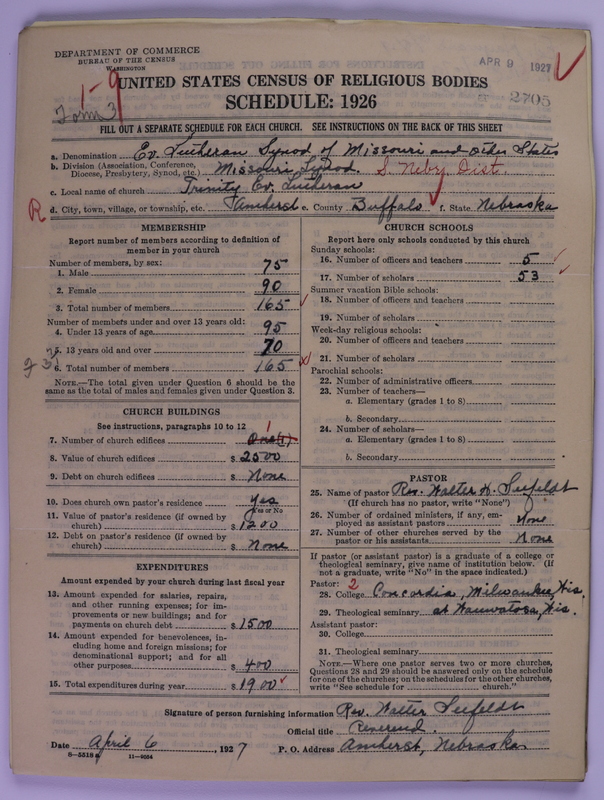 DEPARTMENT OF COMMERCE
BUREAU OF THE CENSUS
WASHINGTON
APR 9 1927
1-9
Form 3
2705
UNITED STATES CENSUS OF RELIGIOUS BODIES
SCHEDULE: 1926
FILL OUT A SEPARATE SCHEDULE FOR EACH CHURCH. SEE INSTRUCTIONS ON THE BACK OF THIS SHEET
a. Denomination Ev. Lutheran Synod of Missouri and Other States
b. Division (Association, Conference, Diocese, Presbytery, Synod, etc.) Missouri Synod. S. Neby. Dist.
c. Local name of church Trinity Ev. Lutheran
R d. City, town, village, or township, etc. Amherst e. County Buffalo f. State Nebraska
MEMBERSHIP
Report number of members according to definition of
member in your church
Number of members, by sex:
1. Male 75
2. Female 90
3. Total number of members 165
Number of members under and over 13 years old:
4. Under 13 years of age 95
5. 13 years old and over 70
6. Total number of members 165
NOTE.—The total given under Question 6 should be the
same as the total of males and females given under Question 3.
CHURCH BUILDINGS
See instructions, paragraphs 10 to 12
7. Number of church edifices One (1) 1
8. Value of church edifices $ 2500
9. Debt on church edifices $ None
10. Does church own pastor's residence Yes
Yes or No
11. Value of pastor's residence (if owned by
church) $ 1200
12. Debt on pastor's residence (if owned by
church) $ None
EXPENDITURES
Amount expended by your church during last fiscal year
13. Amount expended for salaries, repairs,
and other running expenses; for im-
provements or new buildings; and for
payments on church debt $ 1500
14. Amount expended for benevolences, in-
cluding home and foreign missions; for
denominational support; and for all
other purposes $ 400
15. Total expenditures during year $ 1900
CHURCH SCHOOLS
Report here only schools conducted by this church
Sunday schools:
16. Number of officers and teachers 5
17. Number of scholars 53
Summer vacation Bible schools:
18. Number of officers and teachers
19. Number of scholars
Week-day religious schools:
20. Number of officers and teachers
21. Number of scholars
Parochial schools:
22. Number of administrative officers
23. Number of teachers—
a. Elementary (grades 1 to 8)
b. Secondary
24. Number of scholars—
a. Elementary (grades 1 to 8)
b. Secondary
PASTOR
25. Name of pastor Rev. Walter H. Seefeldt
(If church has no pastor, write "None")
26. Number of ordained ministers, if any, em-
ployed as assistant pastors None
27. Number of other churches served by the
pastor or his assistants None
If pastor (or assistant pastor) is a graduate of a college or
theological seminary, give name of institution below. (If
not a graduate, write "No" in the space indicated.)
Pastor: 2
28. College Concordia, Milwaukee, Wis.
29. Theological seminary at Wauwatosa, Wis.
Assistant pastor:
30. College
31. Theological seminary
NOTE.—Where one pastor serves two or more churches,
Questions 28 and 29 should be answered only on the schedule
for one of the churches; on the schedules for the other churches,
write "See schedule for church."
Signature of person furnishing information Rev. Walter Seefeldt
Official title Reverend.
Date April 6, 1927 P. O. Address Amherst, Nebraska
8—5518a 11—9554